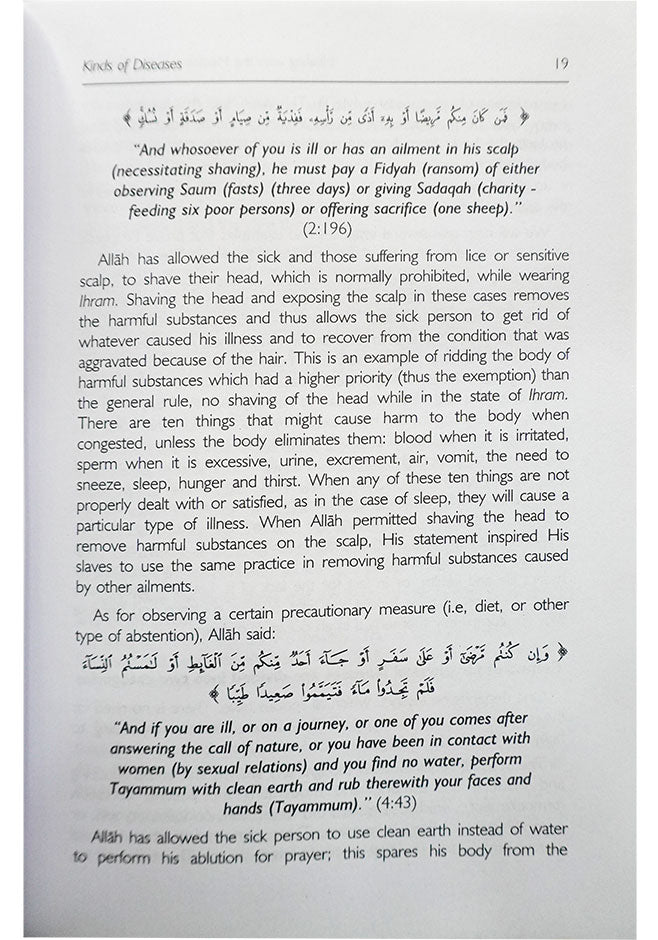 Kinds of Diseases 19
﴿ فَمَن كَانَ مِنكُم مَّرِيضًا أَوْ بِهِۦٓ أَذًى مِّن رَّأْسِهِۦ فَفِدْيَةٌ مِّن صِيَامٍ أَوْ صَدَقَةٍ أَوْ نُسُكٍ ﴾
"And whosoever of you is ill or has an ailment in his scalp
(necessitating shaving), he must pay a Fidyah (ransom) of either
observing Saum (fasts) (three days) or giving Sadaqah (charity -
feeding six poor persons) or offering sacrifice (one sheep)."
(2:196)
Allāh has allowed the sick and those suffering from lice or sensitive
scalp, to shave their head, which is normally prohibited, while wearing
Ihram. Shaving the head and exposing the scalp in these cases removes
the harmful substances and thus allows the sick person to get rid of
whatever caused his illness and to recover from the condition that was
aggravated because of the hair. This is an example of ridding the body of
harmful substances which had a higher priority (thus the exemption) than
the general rule, no shaving of the head while in the state of Ihram.
There are ten things that might cause harm to the body when
congested, unless the body eliminates them: blood when it is irritated,
sperm when it is excessive, urine, excrement, air, vomit, the need to
sneeze, sleep, hunger and thirst. When any of these ten things are not
properly dealt with or satisfied, as in the case of sleep, they will cause a
particular type of illness. When Allāh permitted shaving the head to
remove harmful substances on the scalp, His statement inspired His
slaves to use the same practice in removing harmful substances caused
by other ailments.
As for observing a certain precautionary measure (i.e, diet, or other
type of abstention), Allāh said:
﴿ وَإِن كُنتُم مَّرْضَىٰٓ أَوْ عَلَىٰ سَفَرٍ أَوْ جَآءَ أَحَدٌ مِّنكُم مِّنَ ٱلْغَآئِطِ أَوْ لَٰمَسْتُمُ ٱلنِّسَآءَ
فَلَمْ تَجِدُوا۟ مَآءً فَتَيَمَّمُوا۟ صَعِيدًا طَيِّبًا ﴾
"And if you are ill, or on a journey, or one of you comes after
answering the call of nature, or you have been in contact with
women (by sexual relations) and you find no water, perform
Tayammum with clean earth and rub therewith your faces and
hands (Tayammum)." (4:43)
Allāh has allowed the sick person to use clean earth instead of water
to perform his ablution for prayer; this spares his body from the